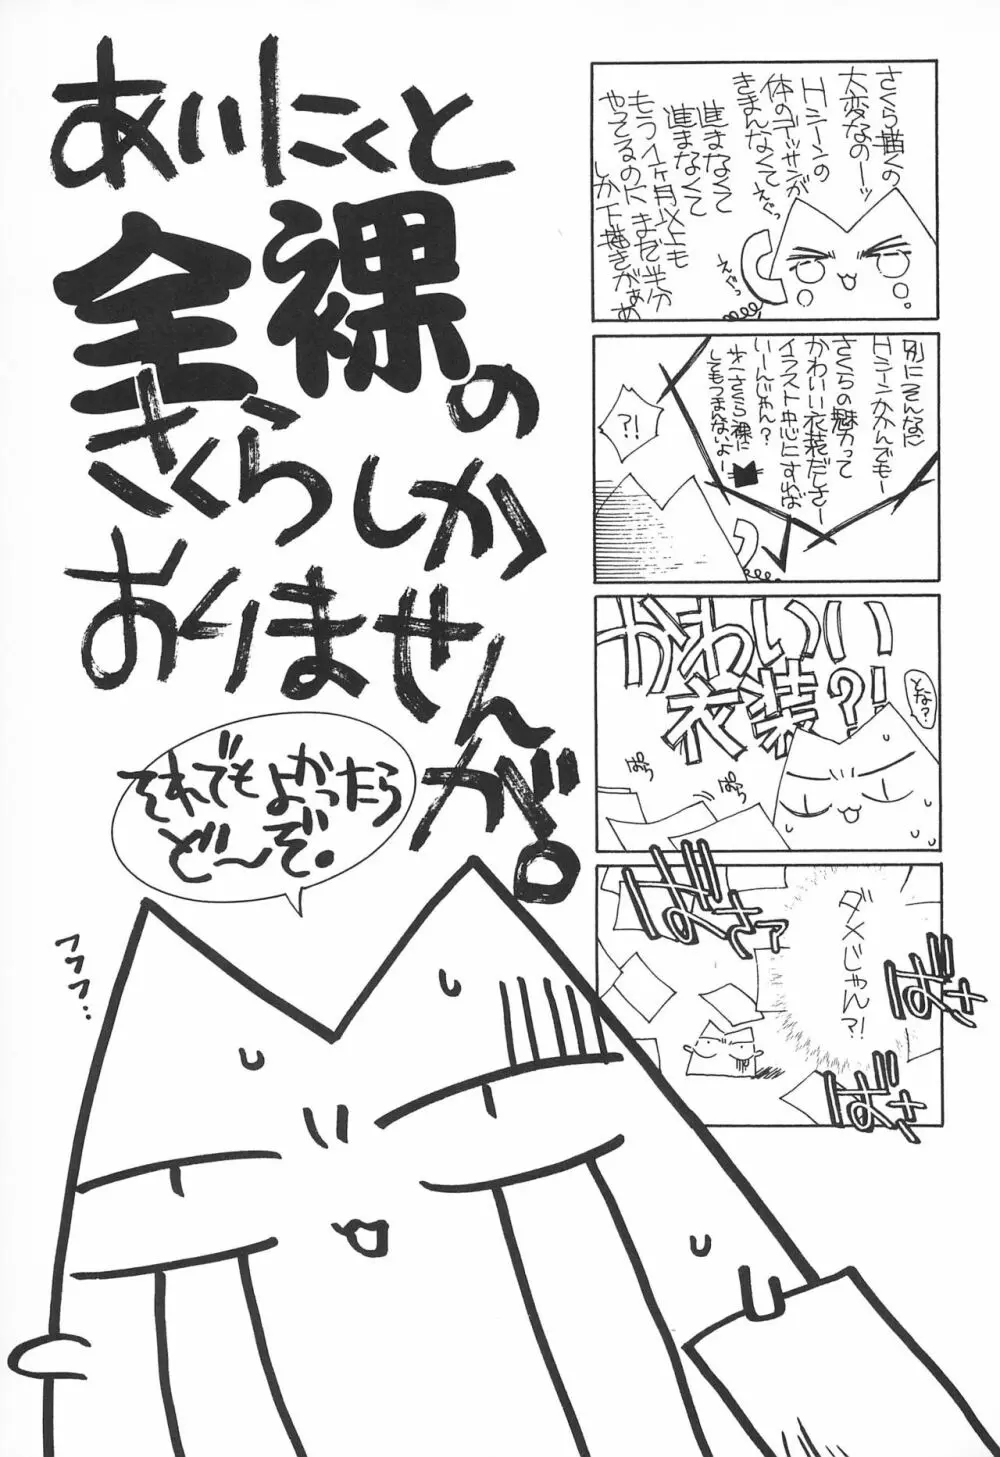 さくら描くの
大変なのーッ
Hシーンの
体のデッサンが
きまんなくて
えぐっ
進まなくて
進まなくて
もう1ヶ月以上も
やってるのにまだ半分
しか下描きがぁぁ
えぐっ
別にそんなに
Hシーンかかんでもー
さくらの魅力って
かわいい衣装だしさー
イラスト中心にすれば
いーんじゃん?
オールさくら裸に
してもつまんないよー
?!
かわいい
衣装?!
とな?
ぱら
ぱら
ダメじゃん?!
ばさっ
ばさ
ばさ
あいにくと
全裸の
さくらしか
おりませんが。
それでもよかったら
ど〜ぞ。
フフフ..